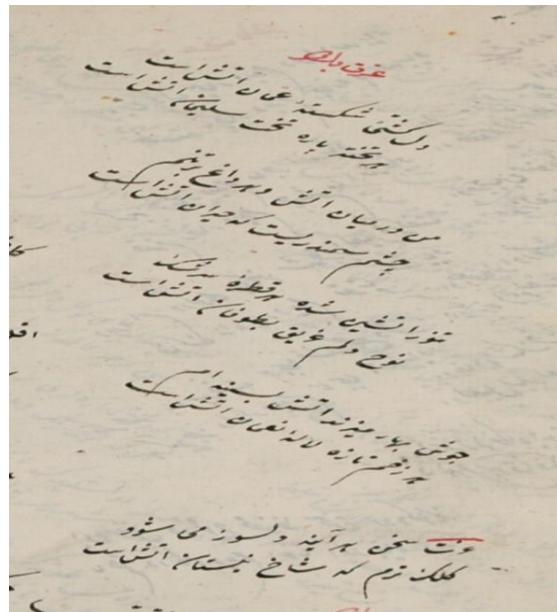 دل کشتی شکستهٔ عمان اتش است
هر تخته پاره تخت سلیمان اتش است
من در میان اتش و هر داغ بر تنم
چشم سمندریست که حیران اتش است
تنور اتشین شده هر قطرهٔ سرشک
نوح دلم غریق بطوفان اتش است
جوش بهار میزند اتش بسینه ام
هر زخم تازه لاله نعمان اتش است
سخن هر آینه دلسوز می شود
کلک ترم که شاخ نیستان اتش است